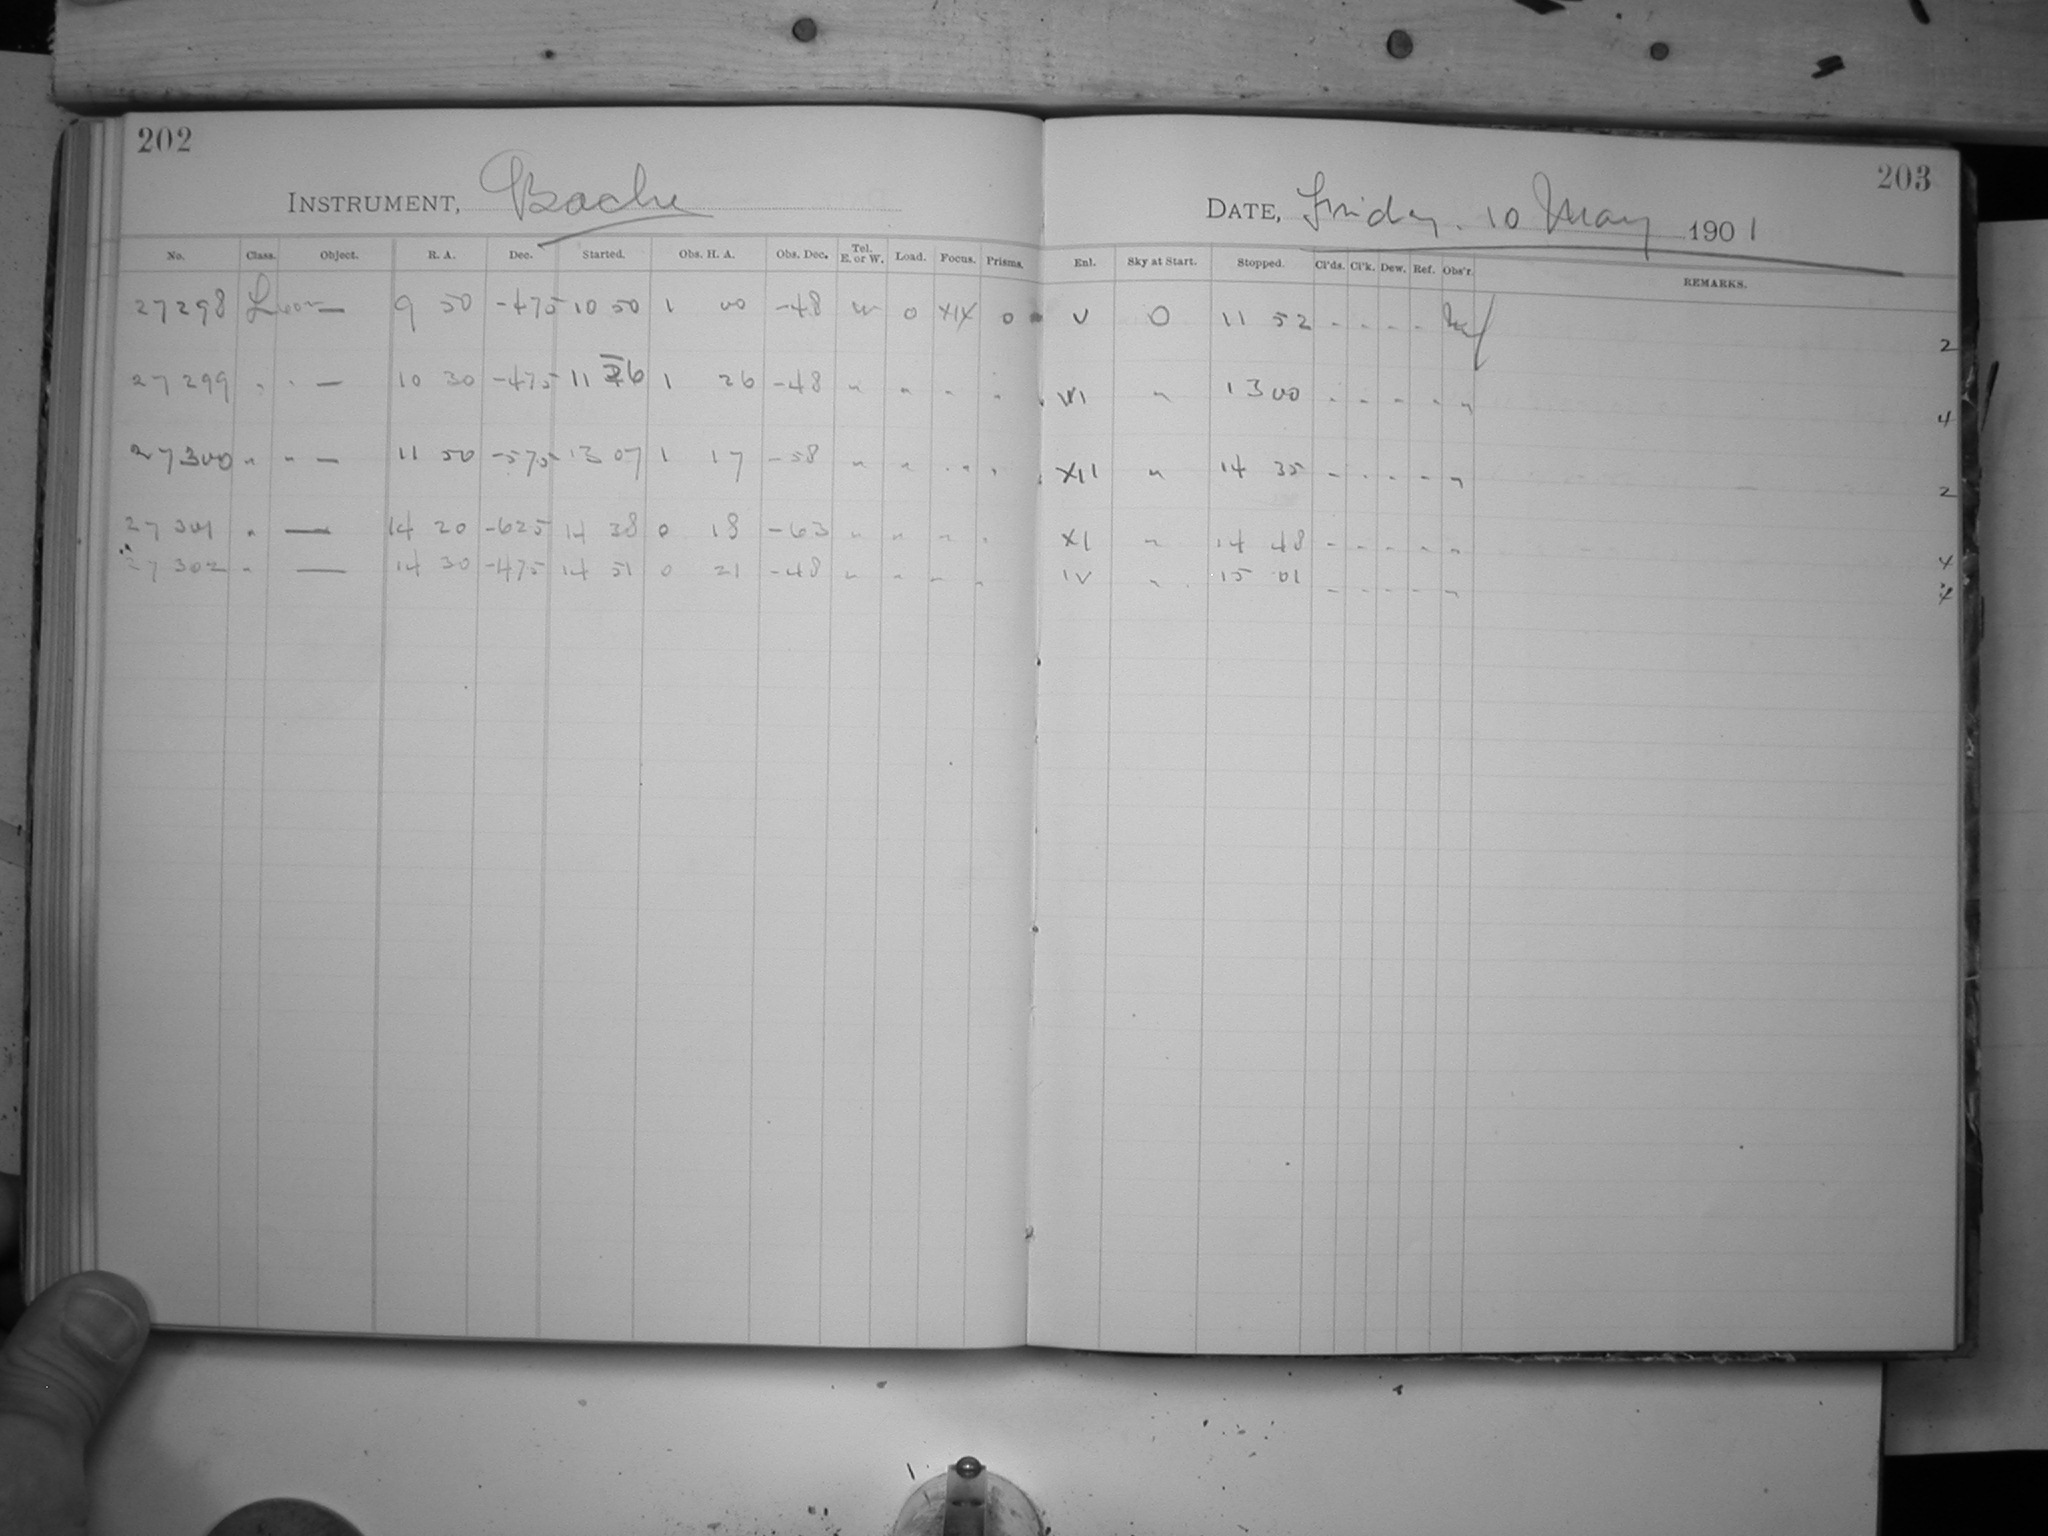 202
203
INSTRUMENT, Bache
DATE, Friday. 10 May 1901
No. Class. Object. R. A. Dec. Started. Obs. H. A. Obs. Dec. Tel. E. or W. Load. Focus. Prisms. Enl. Sky at Start. Stopped. Cl'ds. Cl'k. Dew. Ref. Obs'r. REMARKS.
27298 L — 9 50 -475 10 50 1 00 -48 W 0 XIX 0 V 0 11 52 - - - - 2
27299 " " — 10 30 -475 11 56 1 26 -48 " " " " VI " 13 00 - - - - " 4
27300 " " — 11 50 -575 13 07 1 17 -58 " " " " XII " 14 35 - - - - " 2
27301 " — 14 20 -625 14 38 0 18 -63 " " " " XI " 14 48 - - - - " 4
27302 " — 14 30 -475 14 51 0 21 -48 " " " " IV " 15 01 - - - - " 4